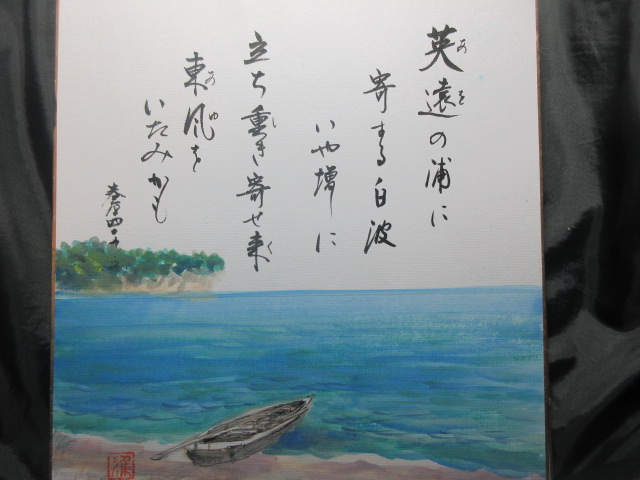 英遠の浦に
あを
寄する白波
いや増に
立ち重き寄せ来
し
く
東風を
あゆ
いたみかも